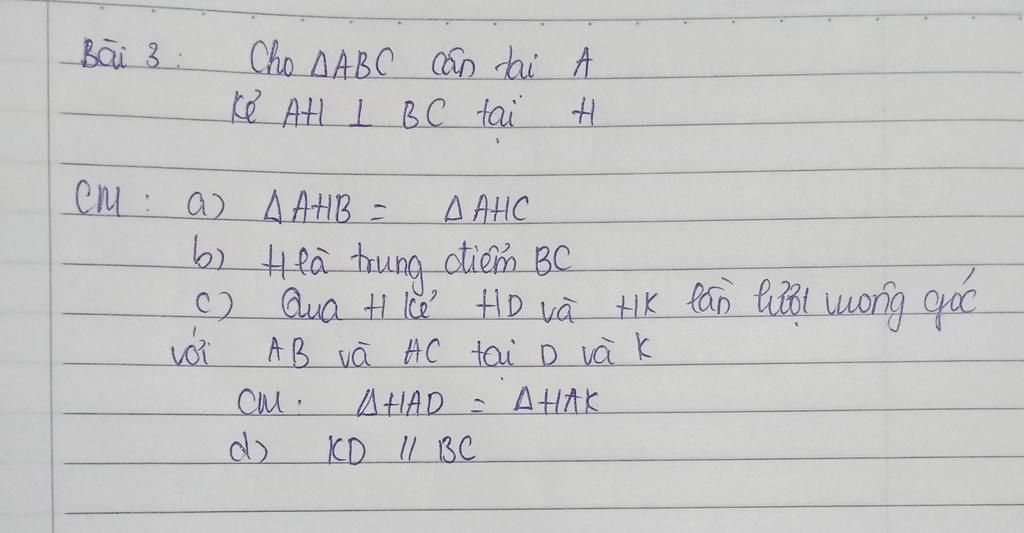 Bài 3: Cho ΔABC cân tai A
Kẻ AH ⊥ BC tại H
CM: a) ΔAHB = ΔAHC
b) H là trung điểm BC
c) Qua H kẻ HD và HK lần lượt vuông góc
với AB và AC tai D và K
CM. ΔHAD = ΔHAK
d) KD // BC